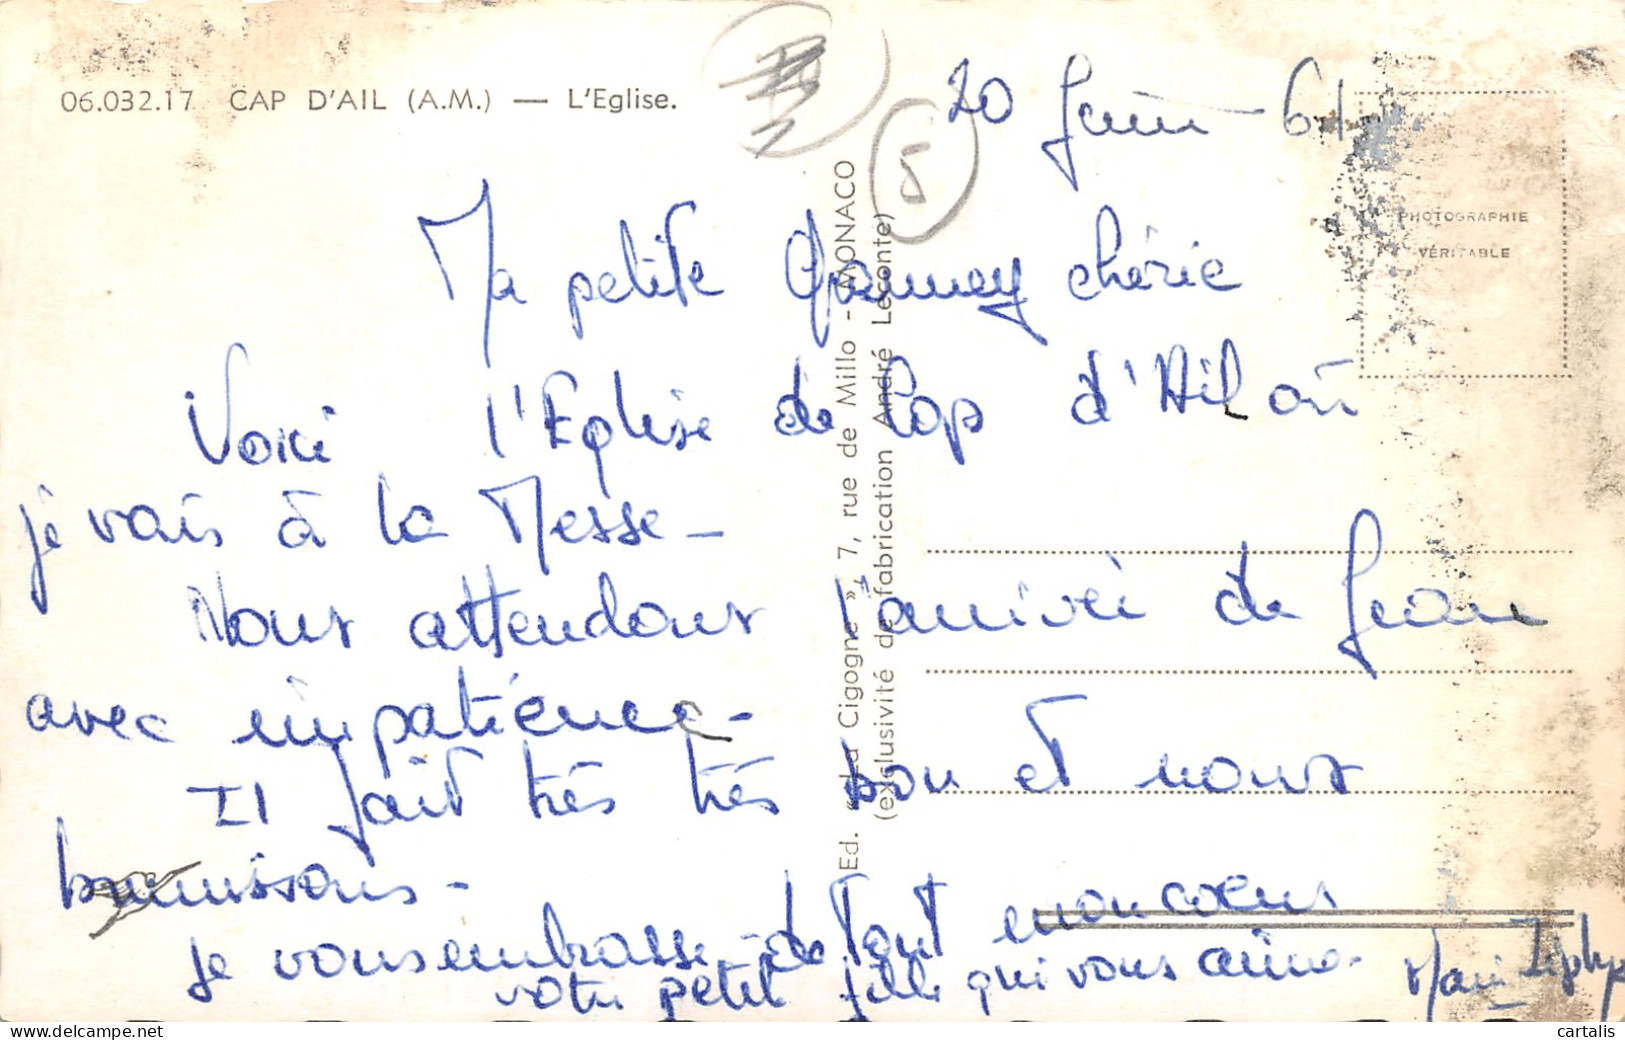 06.032.17 CAP D'AIL (A.M.) — L'Eglise.
5
20 Juin - 61
PHOTOGRAPHIE
VÉRITABLE
Ma petite chérie
Voici l'Eglise de Cap d'Ail où
je vais à la Messe -
Nous attendons l'arrivée de Jean
avec impatience -
Il fait très très bon et nous
brunissons -
Je vous embrasse de tout mon coeur
votre petite fille qui vous aime.
Ed. « La Cigogne », 7, rue de Millo - MONACO
(exclusivité de fabrication André Leconte)
cartalis